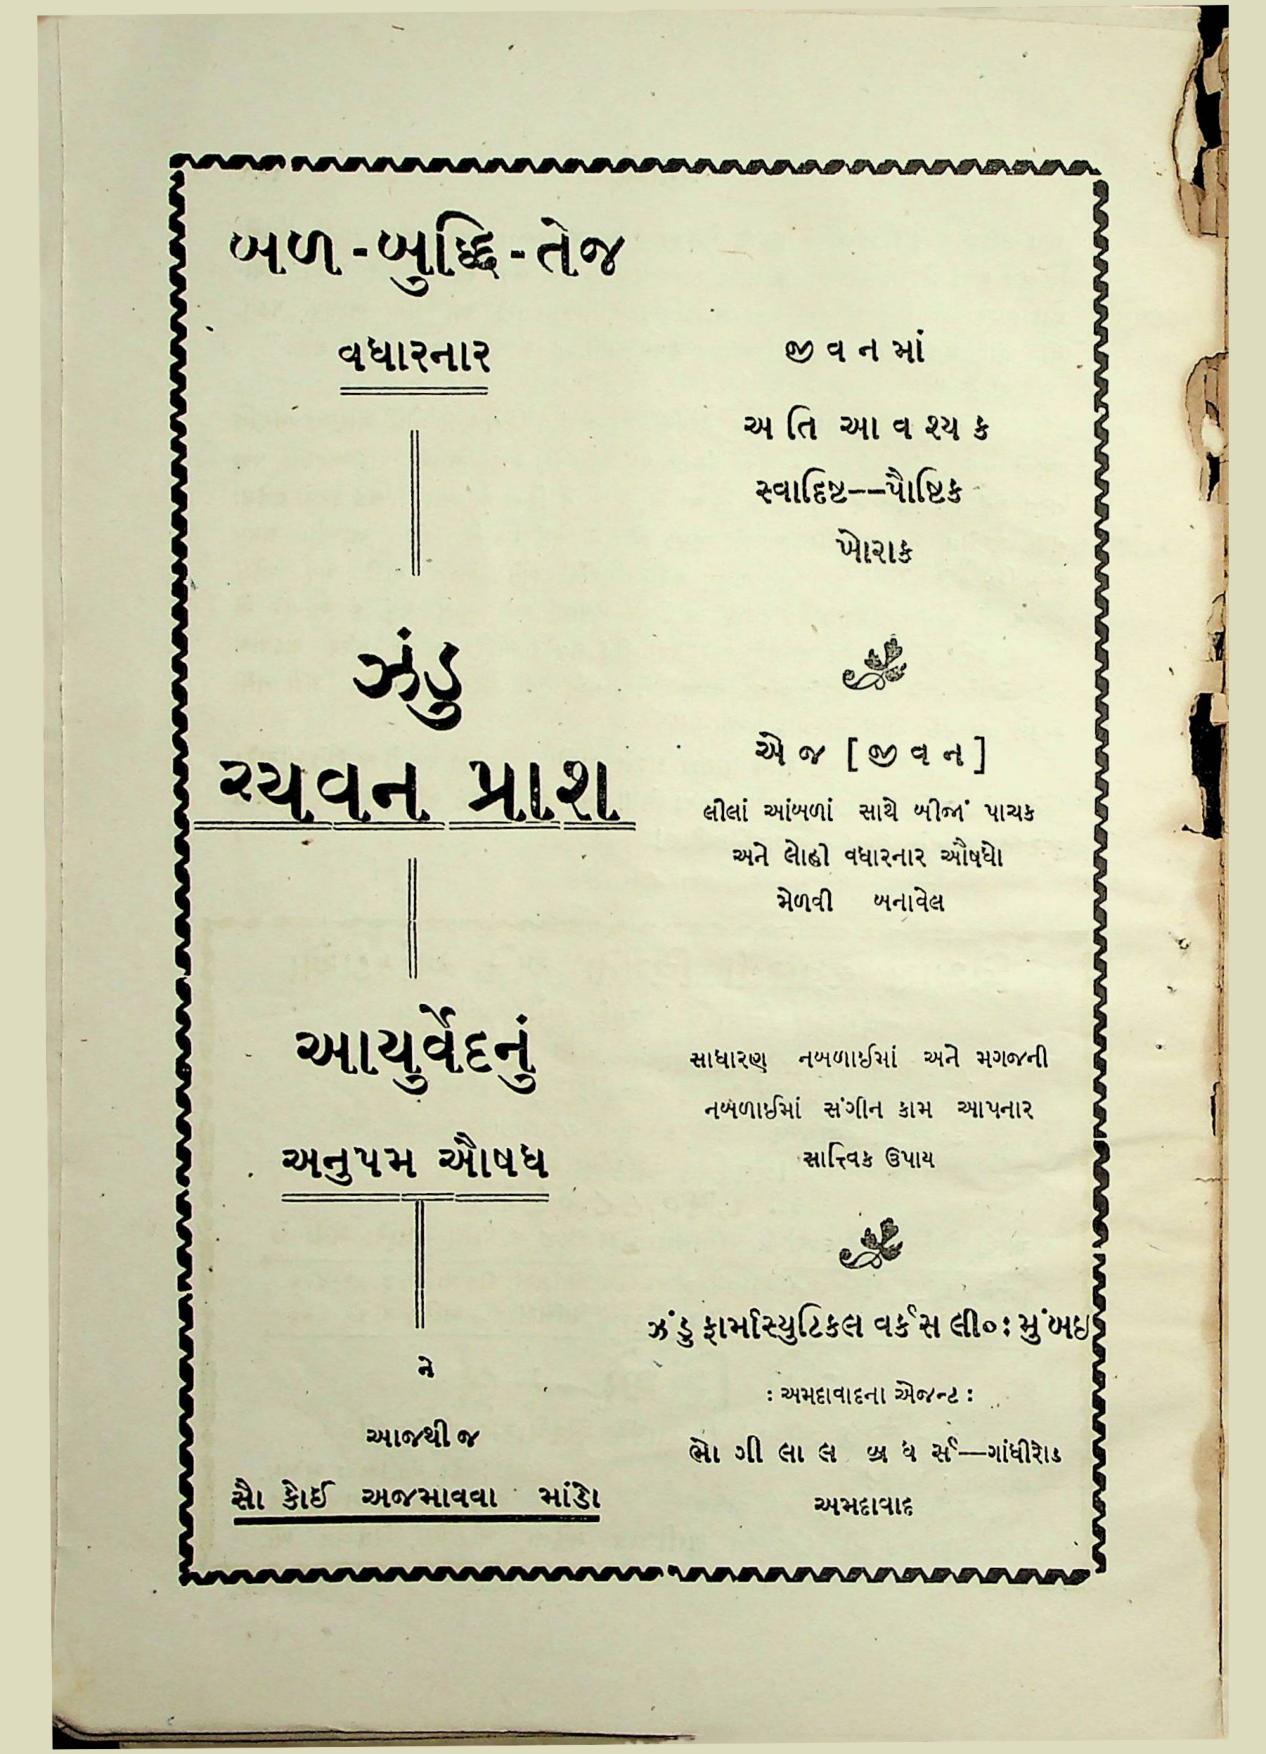 બળ - બુદ્ધિ - તેજ
વધારનાર
ઝંડુ
ચ્યવન પ્રાશ
આયુર્વેદનું
અનુપમ ઔષધ
ને
આજથી જ
સૌ કોઈ અજમાવવા માંડો
જીવનમાં
અતિ આવશ્યક
સ્વાદિષ્ટ--પૌષ્ટિક
ખોરાક
એજ [જીવન]
લીલાં આંબળાં સાથે બીજાં પાચક
અને લોહી વધારનાર ઔષધો
મેળવી બનાવેલ
સાધારણ નબળાઈમાં અને મગજની
નબળાઈમાં સંગીન કામ આપનાર
સાત્ત્વિક ઉપાય
ઝંડુ ફાર્માસ્યુટિકલ વર્કસ લી૦ : મુંબઇ
: અમદાવાદના એજન્ટ :
ભોગીલાલ બ્રધર્સ—ગાંધીરોડ
અમદાવાદ